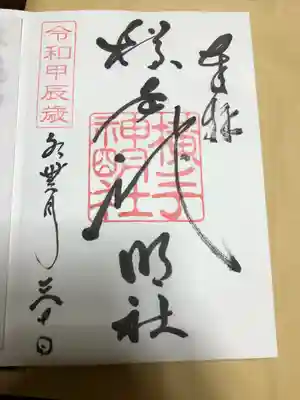 奉拝
横手神明社
横手
神明社
令和甲辰歳
水無月